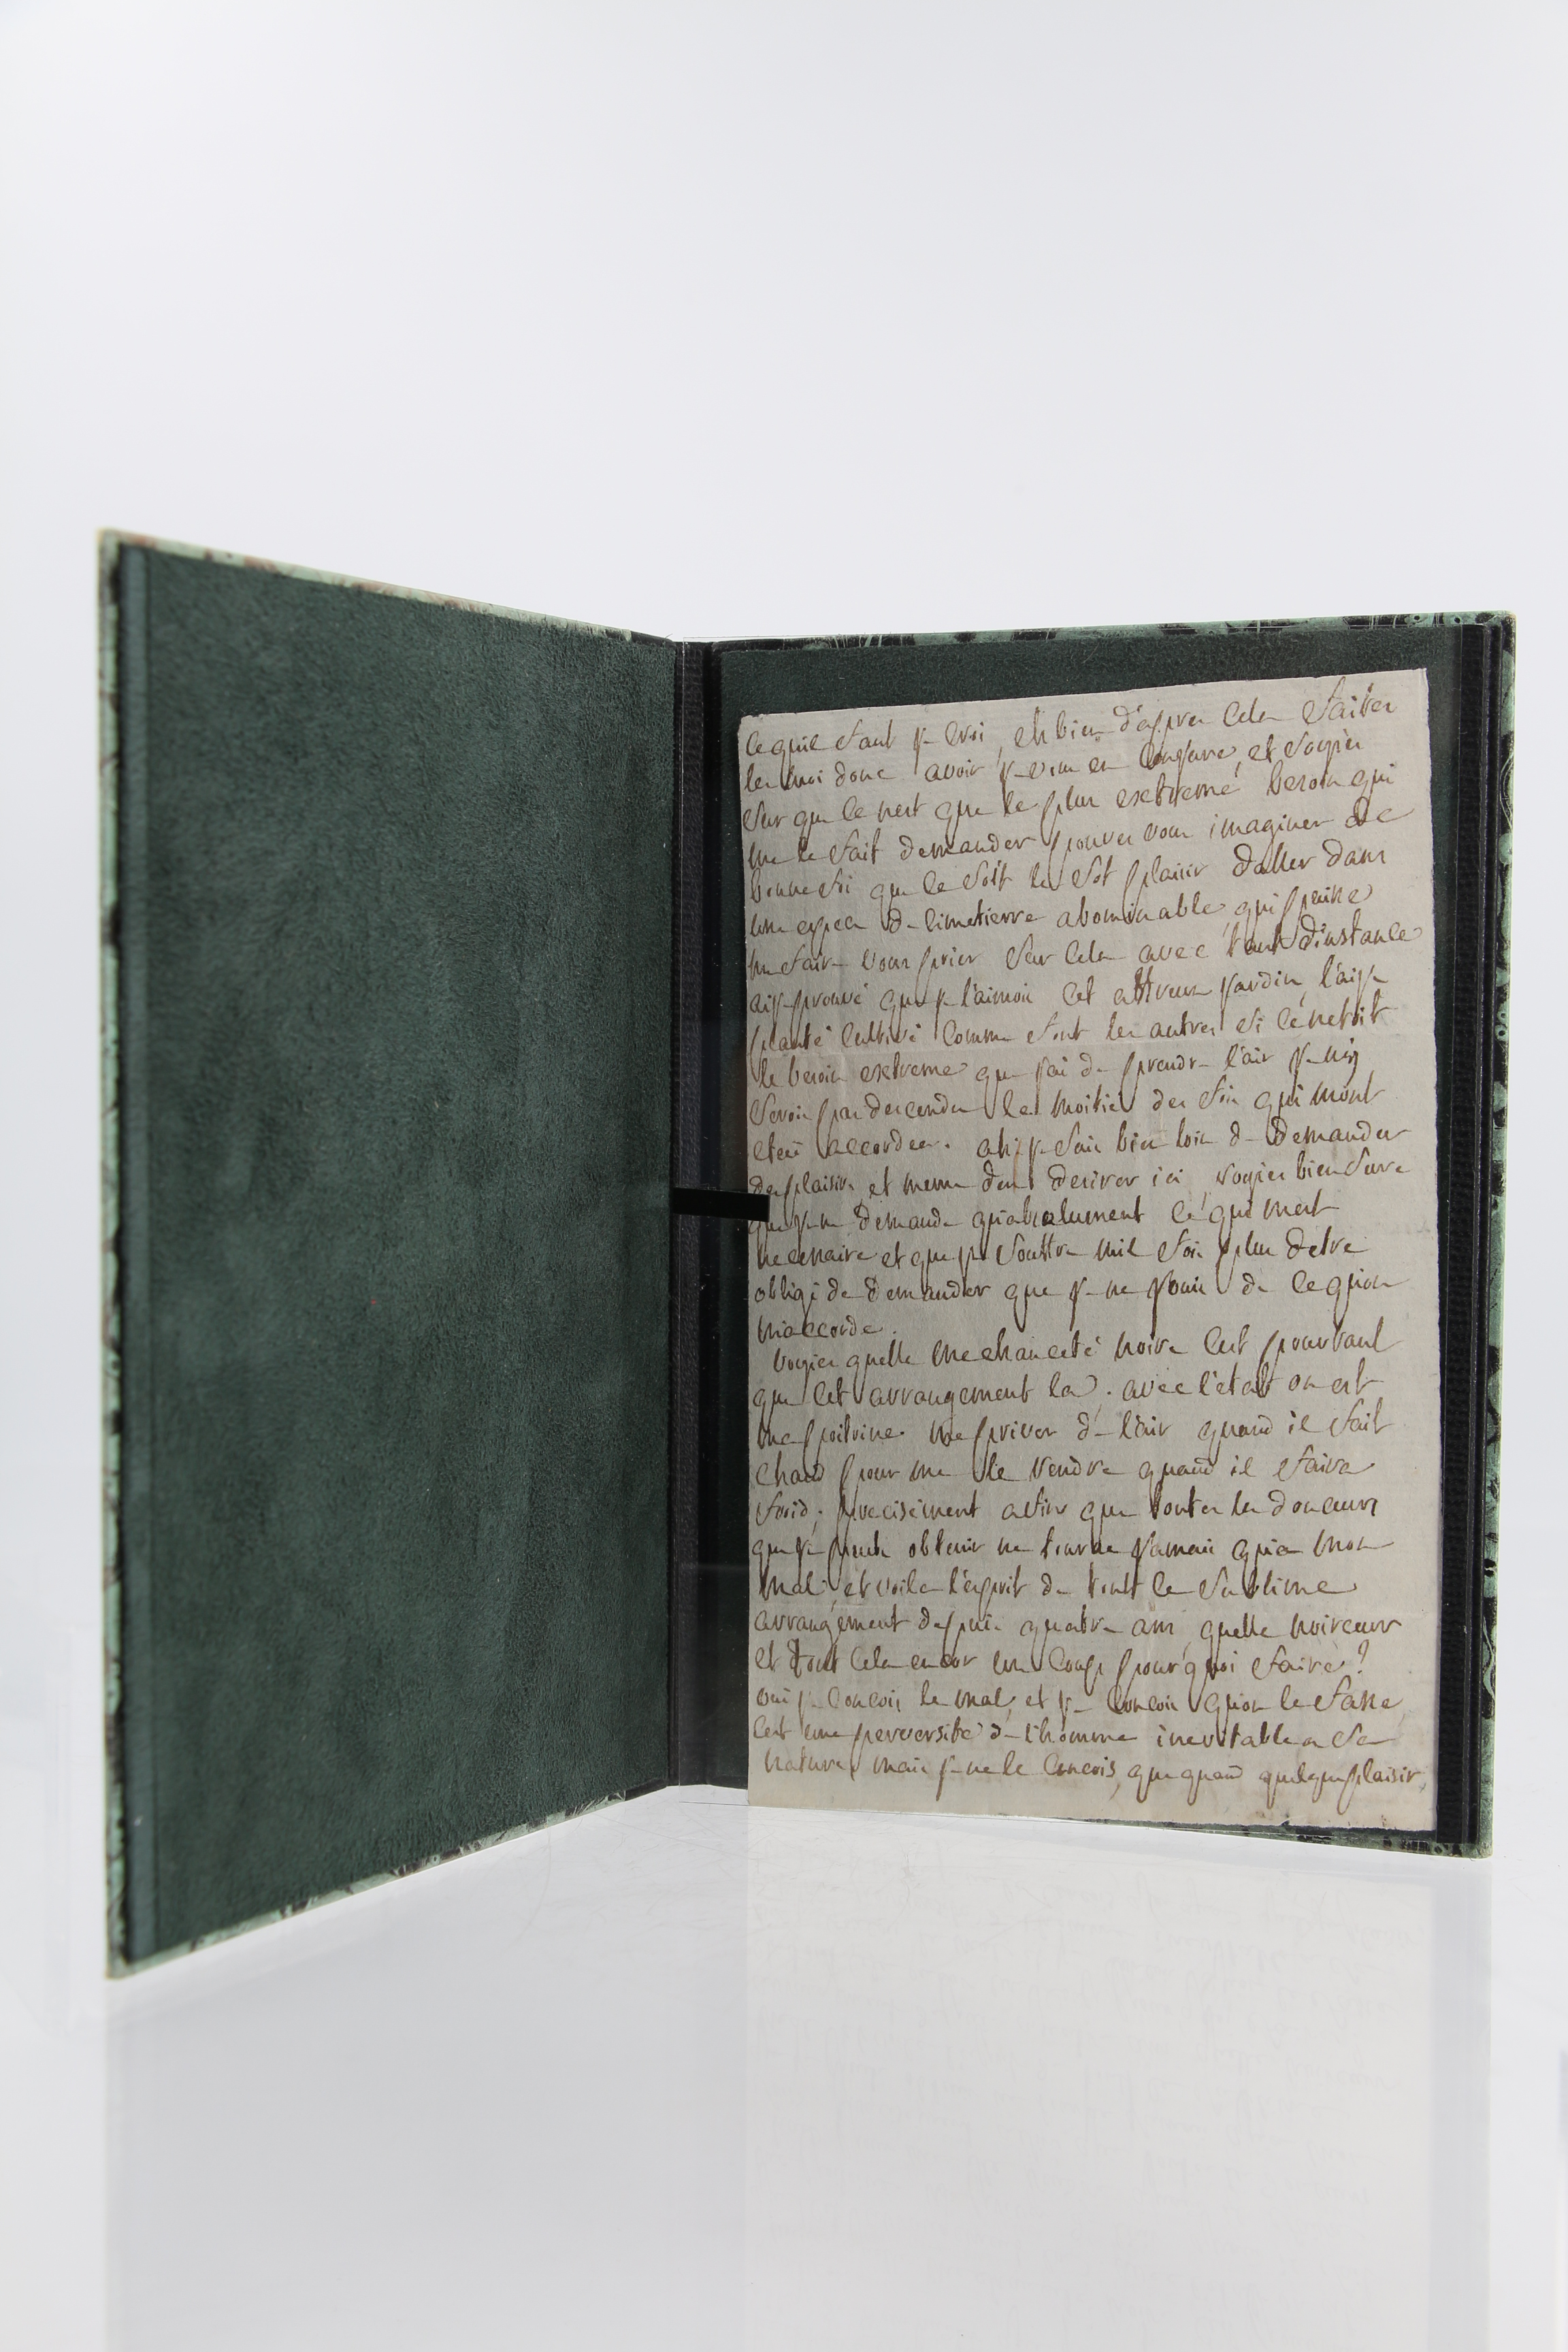 ce quil faut je croi, eh bien d'apres cela faites
les moi donc avoir je vous en conjure, et soyiés
sur que ce nest que le plus extreme besoin qui
me le fait demander pouves vous imaginer de
bonne foi que ce soit le sot plaisir daller dans
une espece de cimetierre abominable, qui puisse
me faire vous prier sur cela avec tant dinstance
ai je prouvé que je l'aimois cet affreux jardin, l'ai je
planté cultivé comme font les autres si cé netoit
le besoin extreme que jai de prendre l'air je ny
serois pas descendu la moitié des fois qui mont
eteés accordées. ah! je suis bien loin de demander
des plaisirs, et meme den desirer ici, soyiés bien sure
que je ne demande quabsolument ce qui mest
necessaire et que je souffre mil fois plus detre
obligé de demander que je ne jouis de ce quon
m'accorde.
voyiés quelle mechanceté noire cest pourtant
que cet arrangement la; avec l'etat ou est
ma poitrine. me priver de l'air quand il fait
chaud pour me le rendre quand il faira
froid; precisément afin que toutes les douceurs
que je puis obtenir ne tourne jamais qu'a mon
mal, et voila l'esprit de tout le sublime
arrangement depuis quatre ans, quelle noirceur
et tout cela encor un coup pourquoi faire?
oui je concois le mal, et je concois quon le fasse,
cest une perversité de l'homme inevitable a sa
nature, mais je ne le concois, que quand quelque plaisir,